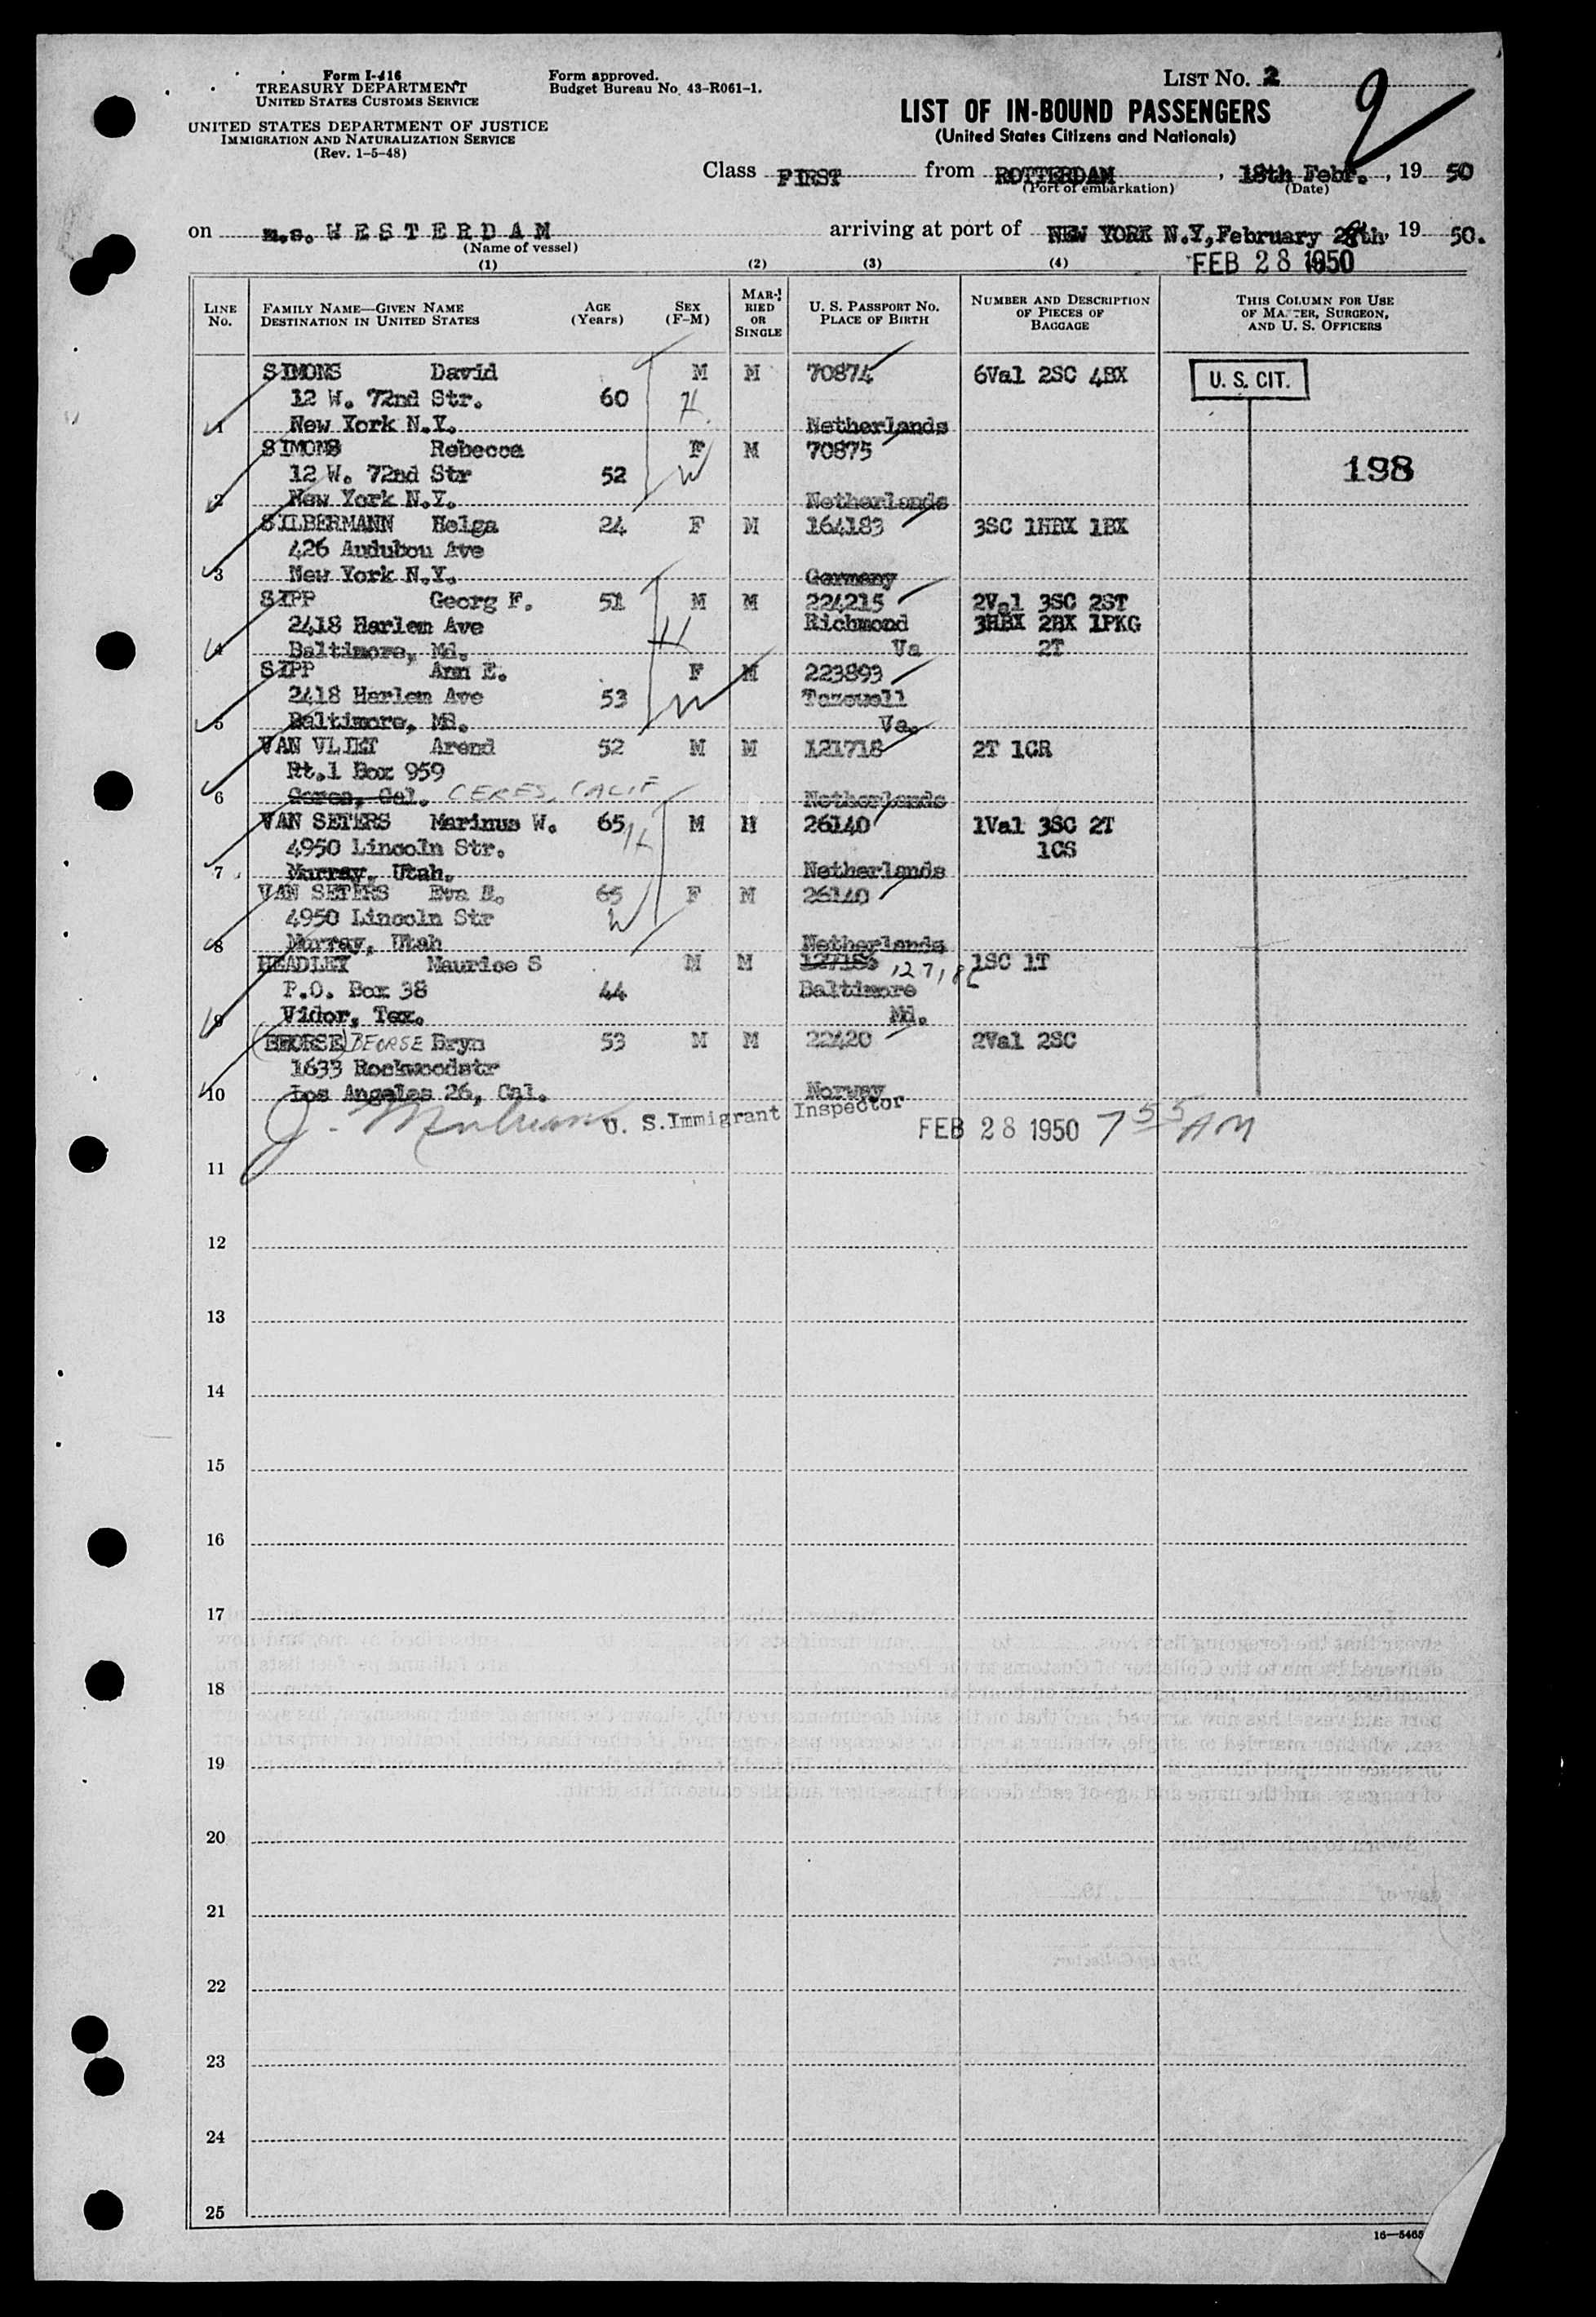 Form I-416
TREASURY DEPARTMENT
UNITED STATES CUSTOMS SERVICE
UNITED STATES DEPARTMENT OF JUSTICE
IMMIGRATION AND NATURALIZATION SERVICE
(Rev. 1-5-48)
Form approved.
Budget Bureau No. 43-R061-1.
LIST No. 2
2
LIST OF IN-BOUND PASSENGERS
(United States Citizens and Nationals)
Class FIRST from ROTTERDAM, 18th Febr., 19 50
(Port of embarkation) (Date)
on m.s. WESTERDAM arriving at port of NEW YORK N.Y., February 28th, 19 50.
(Name of vessel)
FEB 28 1950
(1) (2) (3) (4)
LINE No. FAMILY NAME—GIVEN NAME DESTINATION IN UNITED STATES AGE (Years) SEX (F-M) MARRIED OR SINGLE U. S. PASSPORT No. PLACE OF BIRTH NUMBER AND DESCRIPTION OF PIECES OF BAGGAGE THIS COLUMN FOR USE OF MASTER, SURGEON, AND U. S. OFFICERS
SIMONS David M M 70874 6Val 2SC 4BX U. S. CIT.
12 W. 72nd Str. 60 H.
1 New York N.Y. Netherlands
SIMONS Rebecca F M 70875
12 W. 72nd Str 52 W 198
2 New York N.Y. Netherlands
SILBERMANN Helga 24 F M 164183 3SC 1HBX 1BX
426 Audubou Ave
3 New York N.Y. Germany
SIPP Georg F. 51 M M 224215 2Val 3SC 2ST
2418 Harlem Ave H Richmond 3HBX 2BX 1PKG
4 Baltimore, Md. Va 2T
SIPP Ann E. F M 223893
2418 Harlem Ave 53 W Tazewell
5 Baltimore, Md. Va.
VAN VLIET Arend 52 M M 121718 2T 1CR
Rt.1 Box 959
6 Ceres, Cal. CERES, CALIF Netherlands
VAN SETERS Marinus W. 65 H M M 26140 1Val 3SC 2T
4950 Lincoln Str. 1CS
7 Murray, Utah. Netherlands
VAN SETERS Eva E. 65 F M 26140
4950 Lincoln Str W
8 Murray, Utah Netherlands
HEADLEY Maurice S M M 127186 127186 1SC 1T
P.O. Box 38 44 Baltimore
9 Vidor, Tex. Md.
(BEORSE) BEORSE Bryn 53 M M 22420 2Val 2SC
1633 Rockwoodstr
10 Los Angeles 26, Cal. Norway
U. S. Immigrant Inspector FEB 28 1950 7 55 AM
11
12
13
14
15
16
17
18
19
20
21
22
23
24
25